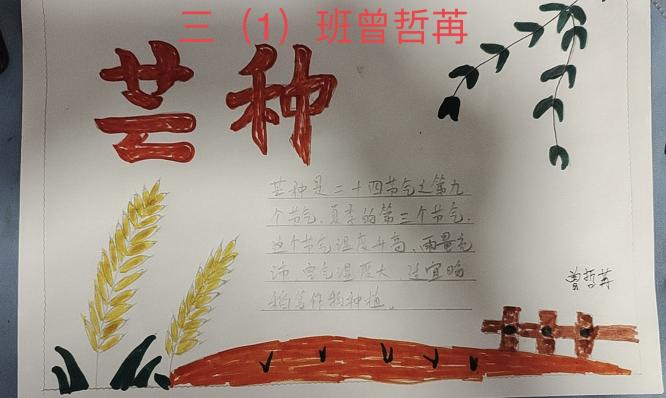 三（1）班曾哲苒
芒种
芒种是二十四节气之第九
个节气，夏季的第三个节气，
这个节气温度升高，雨量充
沛，空气湿度大，适宜晚
稻等作物种植。
曾哲苒